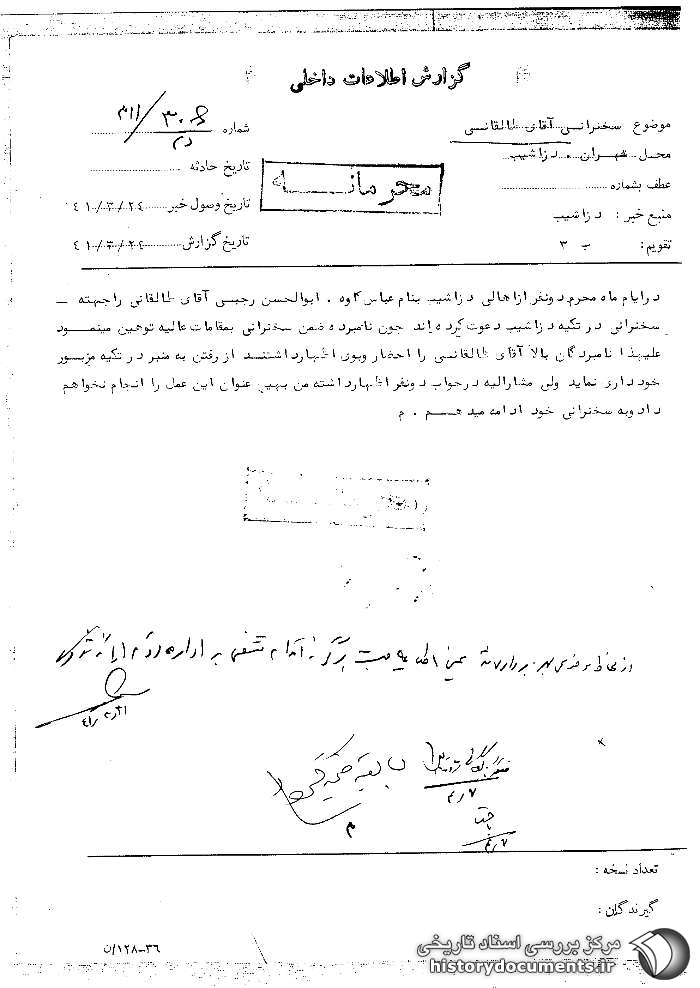 گزارش اطلاعات داخلی
موضوع سخنرانی آقای طالقانی
محل شهران . دزاشیب
عطف بشماره
منبع خبر : دزاشیب
تقویم : ب ۳
محرمانه
شماره ۳۰۶ / ۳۱۱
تاریخ حادثه
تاریخ وصول خبر ۴۱/۳/۲۴
تاریخ گزارش ۴۱/۳/۲۴
درایام ماه محرم دونفر ازاهالی دزاشیب بنام عباس کاوه . ابوالحسن رجبی آقای طالقانی راجهته –
سخنرانی در تکیه دزاشیب دعوت کرده اند چون نامبرده ضمن سخنرانی بمقامات عالیه توهین مینمود
علیهذا نامبردگان بالا آقای طالقانی را احضار وبوی اظهارداشتند از رفتن به منبر در تکیه مزبور
خودداری نماید ولی مشارالیه درجواب دونفر اظهارداشته من بهیچ عنوان این عمل را انجام نخواهم
داد وبه سخنرانی خود ادامه میدهم . م
تعداد نسخه :
گیرندگان :
۳۶-۱۲۸/ن
مرکز بررسی اسناد تاریخی
historydocuments.ir